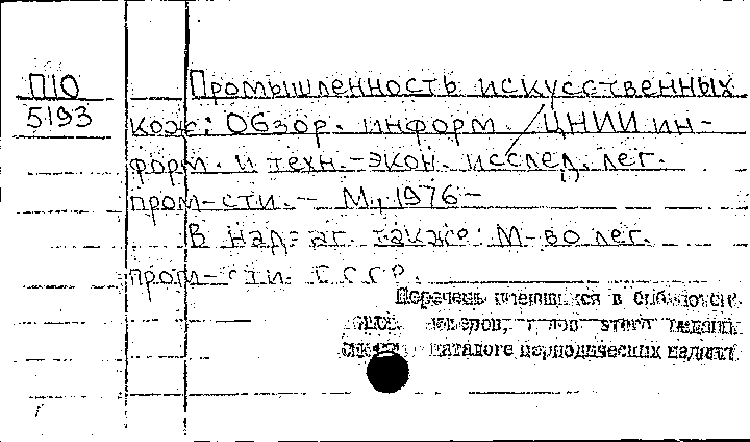 П10
5193
Промышленность искусственных
кож: Обзор. информ. / ЦНИИ ин-
форм. и техн.-экон. исслед. лег.
пром-сти. - М., 1976 -
В над-заг. также: М-во лег.
пром-сти СССР.
Перечень имеющихся в библиотеке
номеров, этого
каталоге периодических издани